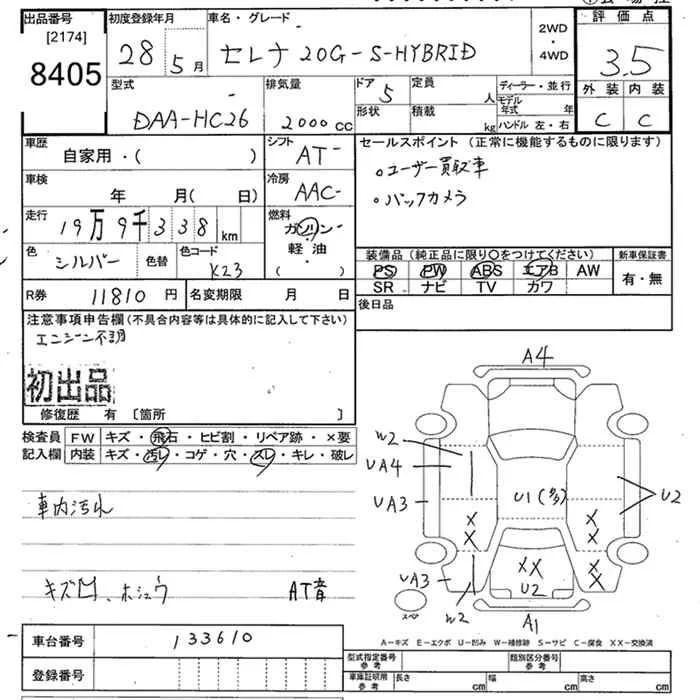 出品番号
[2174]
8405
初度登録年月
28 5月
車名・グレード
セレナ 20G-S-HYBRID
2WD
・
4WD
評価点
3.5
外装 内装
C C
型式
DAA-HC26
排気量
2000cc
ドア
5
定員
人
形状
積載
kg
ディーラー・並行
モデル年式 年
ハンドル 左・右
車歴
自家用・( )
シフト
AT-
車検
年 月( 日)
冷房
AAC-
走行
19万9千338km
燃料
ガソリン
軽・油
( )
色
シルバー
色替
色コード
K23
R券 11810円
名変期限 月 日
セールスポイント (正常に機能するものに限ります)
○ユーザー買取車
○バックカメラ
装備品(純正品に限り○をつけてください)
PS PW ABS エアB AW
SR ナビ TV カワ
新車保証書
有・無
後日品
注意事項申告欄(不具合内容等は具体的に記入して下さい)
エンジン不調
初出品
修復歴 有 〔箇所 〕
検査員記入欄
FW キズ・飛石・ヒビ割・リペア跡・×要
内装 キズ・汚レ・コゲ・穴・スレ・キレ・破レ
車内汚れ
キズ凹、ホシュウ AT音
A4
W2
UA4
UA3
U1(多々)
U2
XX
XX
XX
XX
U2
UA3
W2
A1
スペア
A-キズ E-エクボ U-凹み W-補修跡 S-サビ C-腐食 XX-交換済
車台番号 133610
登録番号
型式指定番号
参考
類別区分番号
参考
車庫証明用
参考
長さ cm
幅 cm
高さ cm